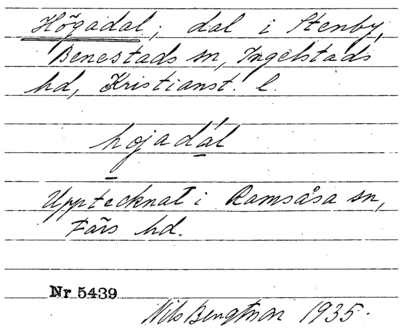 Högadal; dal i Stenby,
Benestads sn, Ingelstads
hd, Kristianst. l.
hojadál
Upptecknat i Ramsåsa sn,
Färs hd.
Nr 5439
Nils Bengtson 1935.